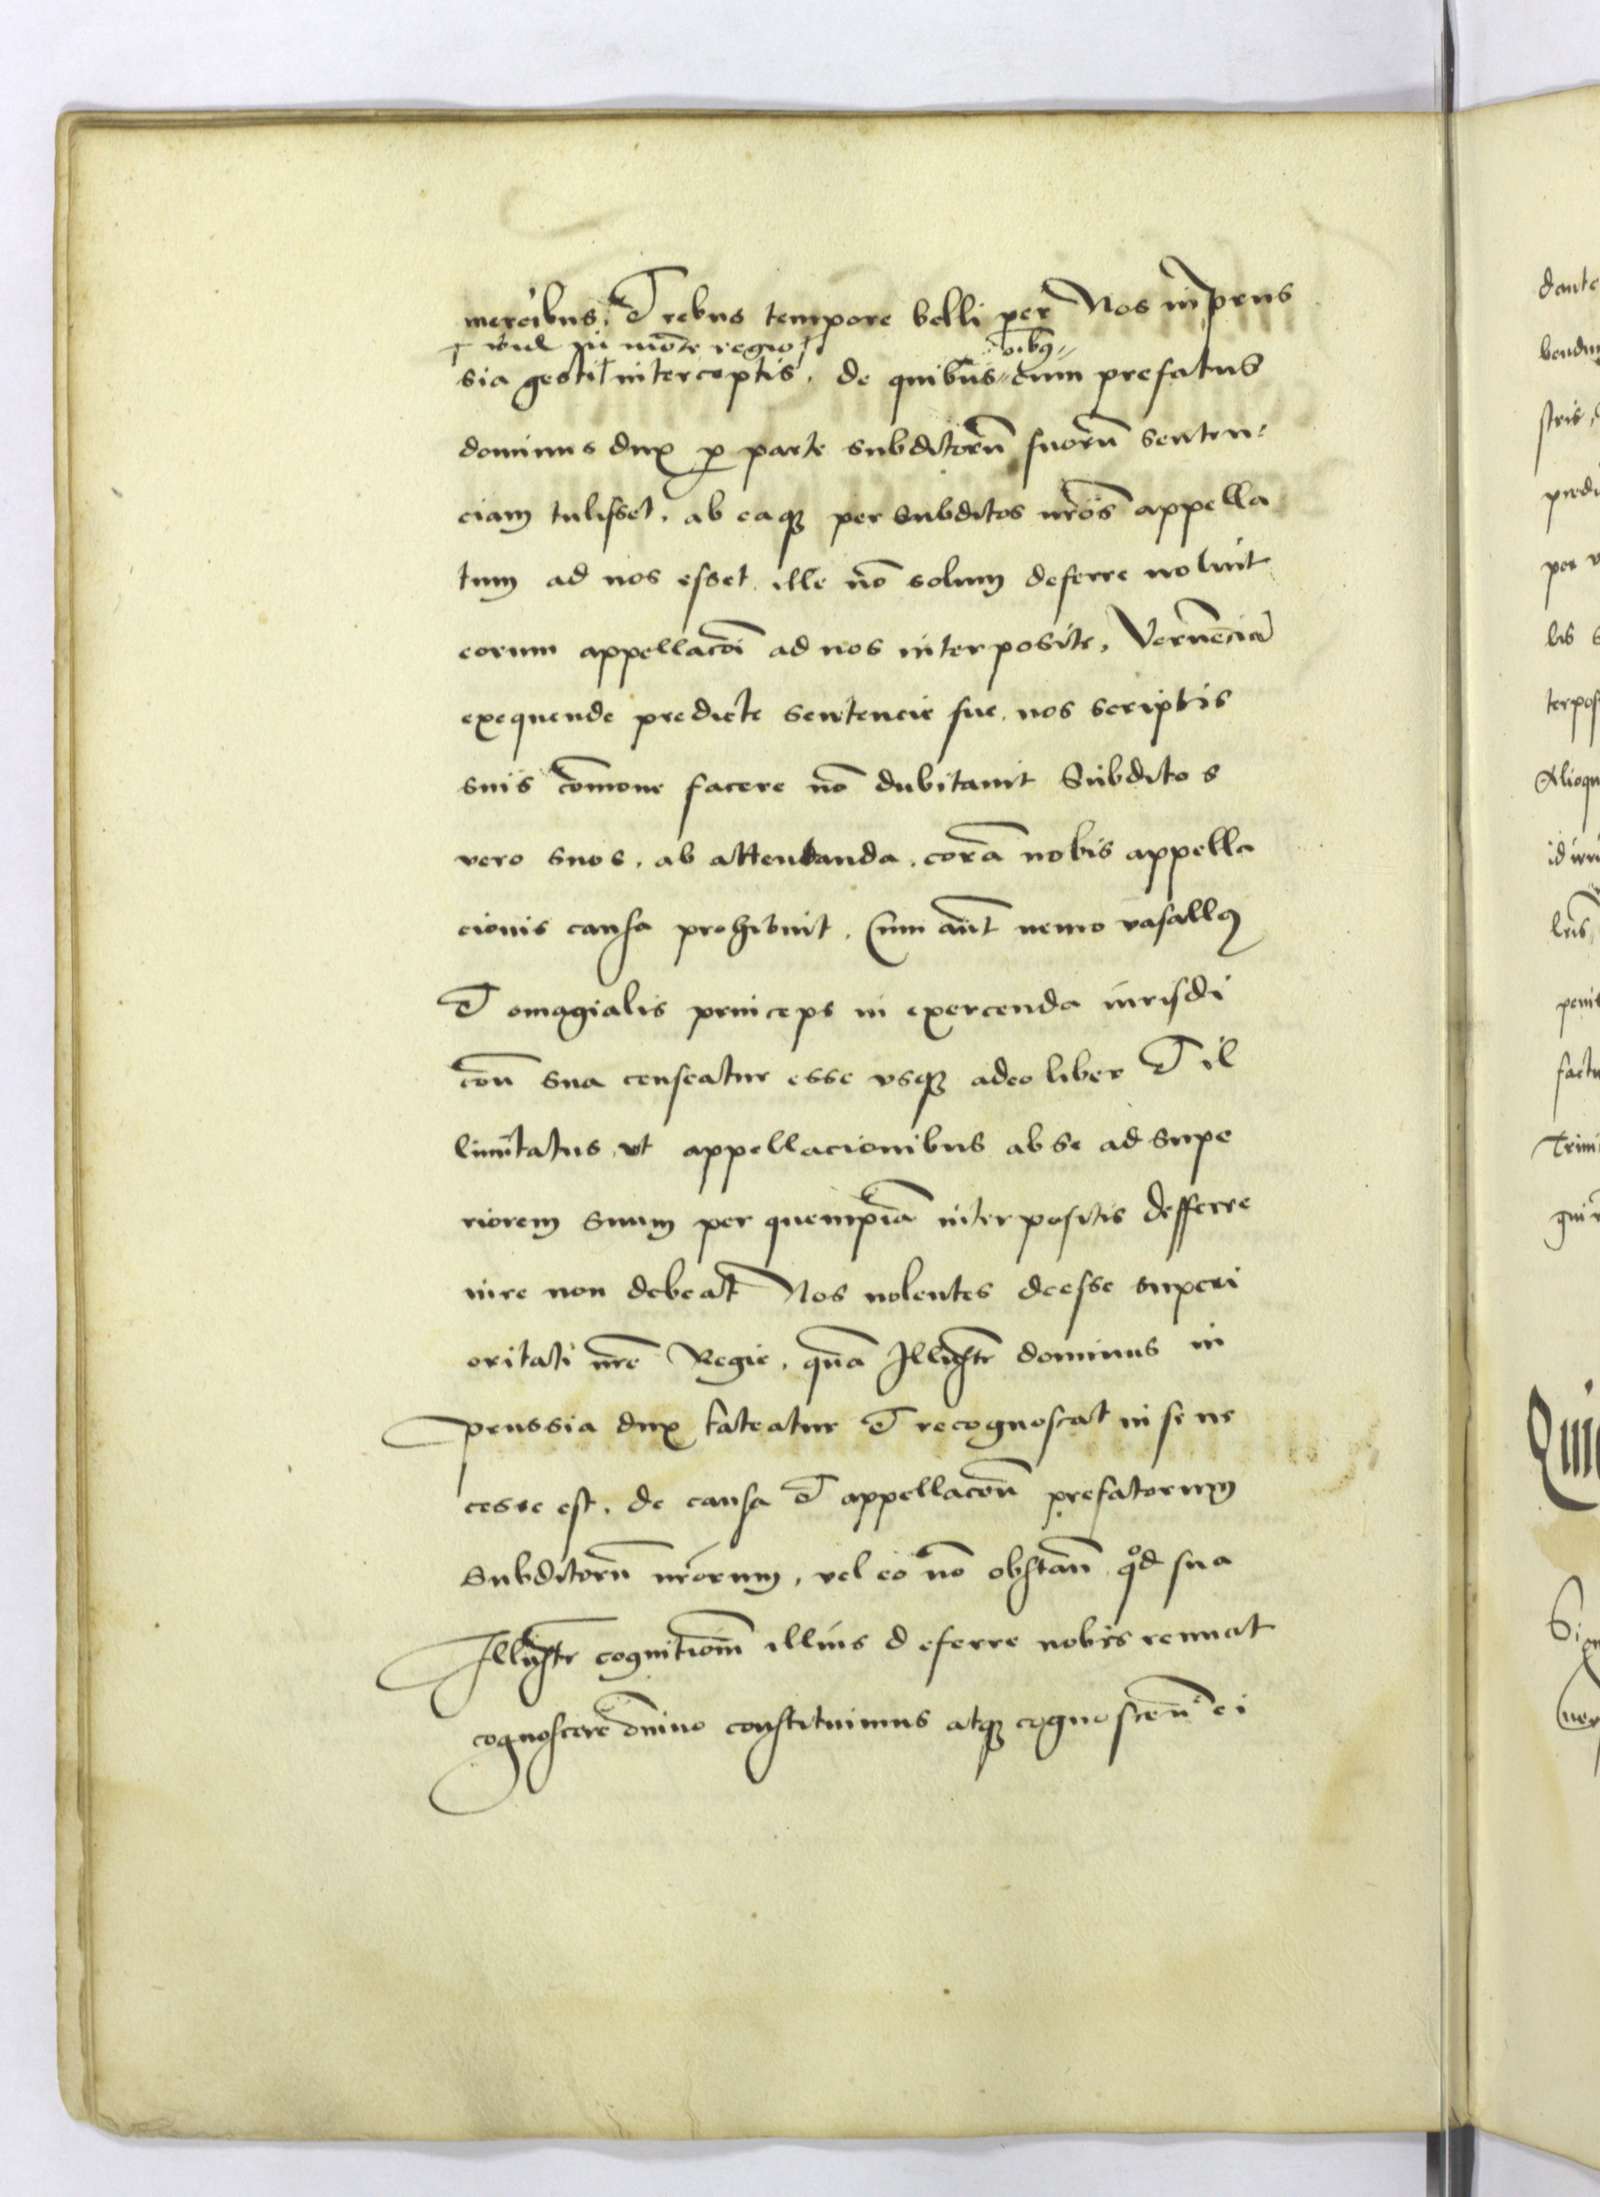 mercibus, Et rebus tempore belli per Nos in prus
† vid in mõte regio † oibq
sia gesti † interceptis, de quibus cum prefatus
dominus dux p parte subditorũ suorũ senten
ciam tulisset, ab eaqз per subditos nr̃os appella
tum ad nos esset ille nõ solum deferre noluit
eorum appellacõi ad nos interposite,
exequende predicte sentencie sue, nos scriptis
suis facere nõ dubitauit Subditos
vero suos, ab attentanda, corã nobis appella
cionis causa prohibuit, Cum aũt nemo vasallq
Et omagialis princeps in exercenda iurisdi
cõn sua censeatur esse vsqз adeo liber Et il
limitatus, vt appellacionibus ab se ad supe
riorem suum per quempiã interpositis defferre
iure non debeat Nos nolentes deesse superi
oritati nr̃e Regie, quã Illustr̃ dominus in
prussia dux fateatur Et recognoscat in se ne
cesse est, de causa Et appellacõn prefatorum
Subditorũ nr̃orum, vel eo nõ obstañ qod sua
Illustr̃ cognitiom̃ illius deferre nobis renuat
cognoscere om̃ino constituimus atqз cognosceñ ei
dante
per v
terpos
Alioqu
factu
Qui